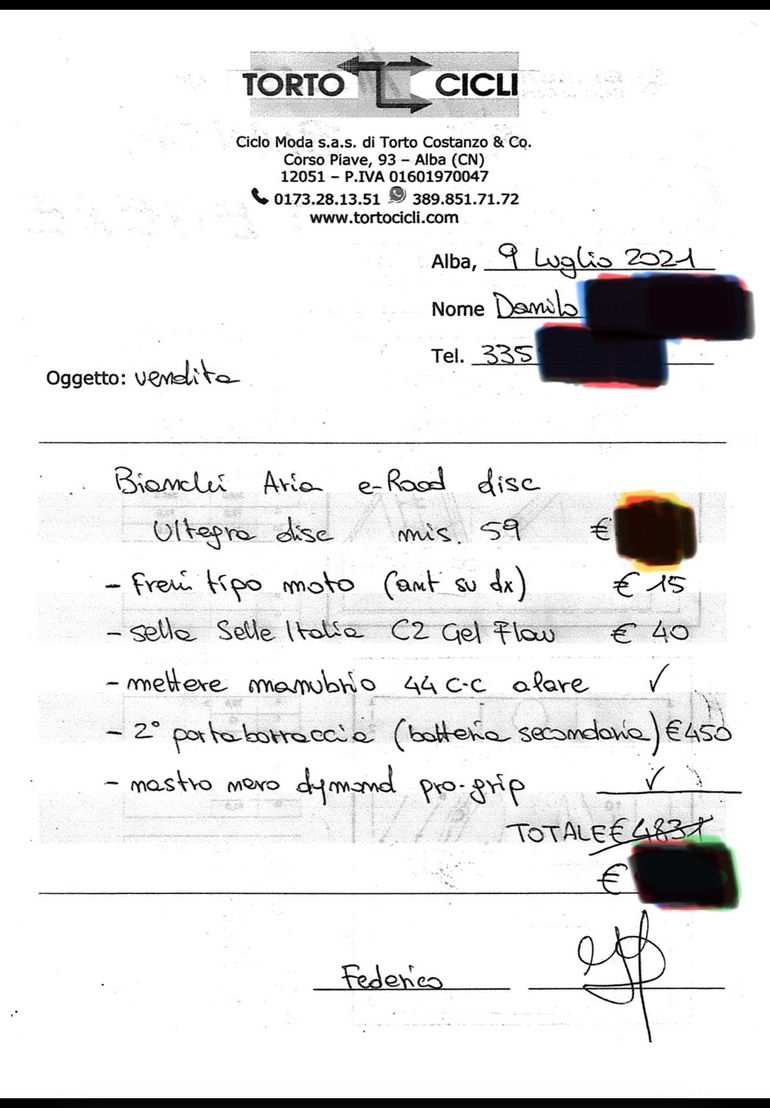 TORTO CICLI
Ciclo Moda s.a.s. di Torto Costanzo & Co.
Corso Piave, 93 – Alba (CN)
12051 – P.IVA 01601970047
0173.28.13.51 389.851.71.72
www.tortocicli.com
Alba, 9 Luglio 2021
Nome Danilo
Tel. 335
Oggetto: vendita
Bianchi Aria e-Road disc
Ultegra disc mis. 59 €
- freni tipo moto (ant su dx) € 15
- sella Selle Italia C2 Gel Flow € 40
- mettere manubrio 44 c-c alare ✓
- 2° portaborraccia (batteria secondaria) € 450
- nastro nero dymond pro-grip ✓
TOTALE € 4831
€
Federico